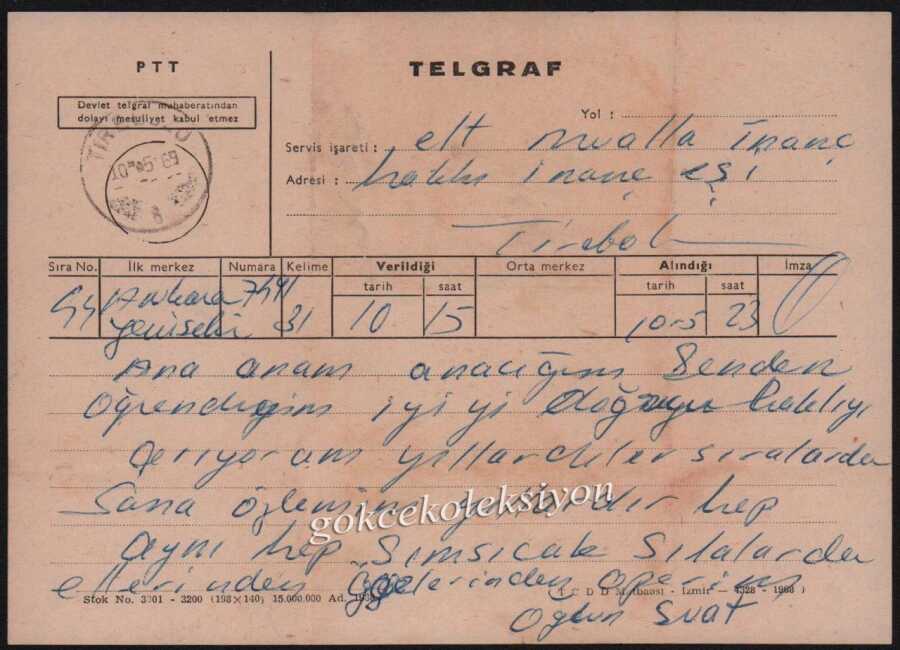 PTT
TELGRAF
Devlet telgraf muhaberatından
dolayı mesuliyet kabul etmez
TİREBOLU
10 -5 69
8
Yol :
Servis işareti : elt Mualla İnanç
Adresi : hakkı inanç eşi
Tirebolu
Sıra No. İlk merkez Numara Kelime Verildiği Orta merkez Alındığı İmza
tarih saat tarih saat
44 Ankara 7491
Yenişehir 31 10 15 10-5 23
Ana anam anacığım Senden
Öğrendiğim iyiyi doğruyu haklıyı
yıllardır sıralarda
Sana özlemim hep
aynı hep Sımsıcak Sılalarda
ellerinden öperim
gokcekoleksiyon
Stok No. 3301 - 3200 (198×140) 15.000.000 Ad. 1968 (T C D D M tbaası - İzmir — 4328 - 1968)
Oğlun Suat